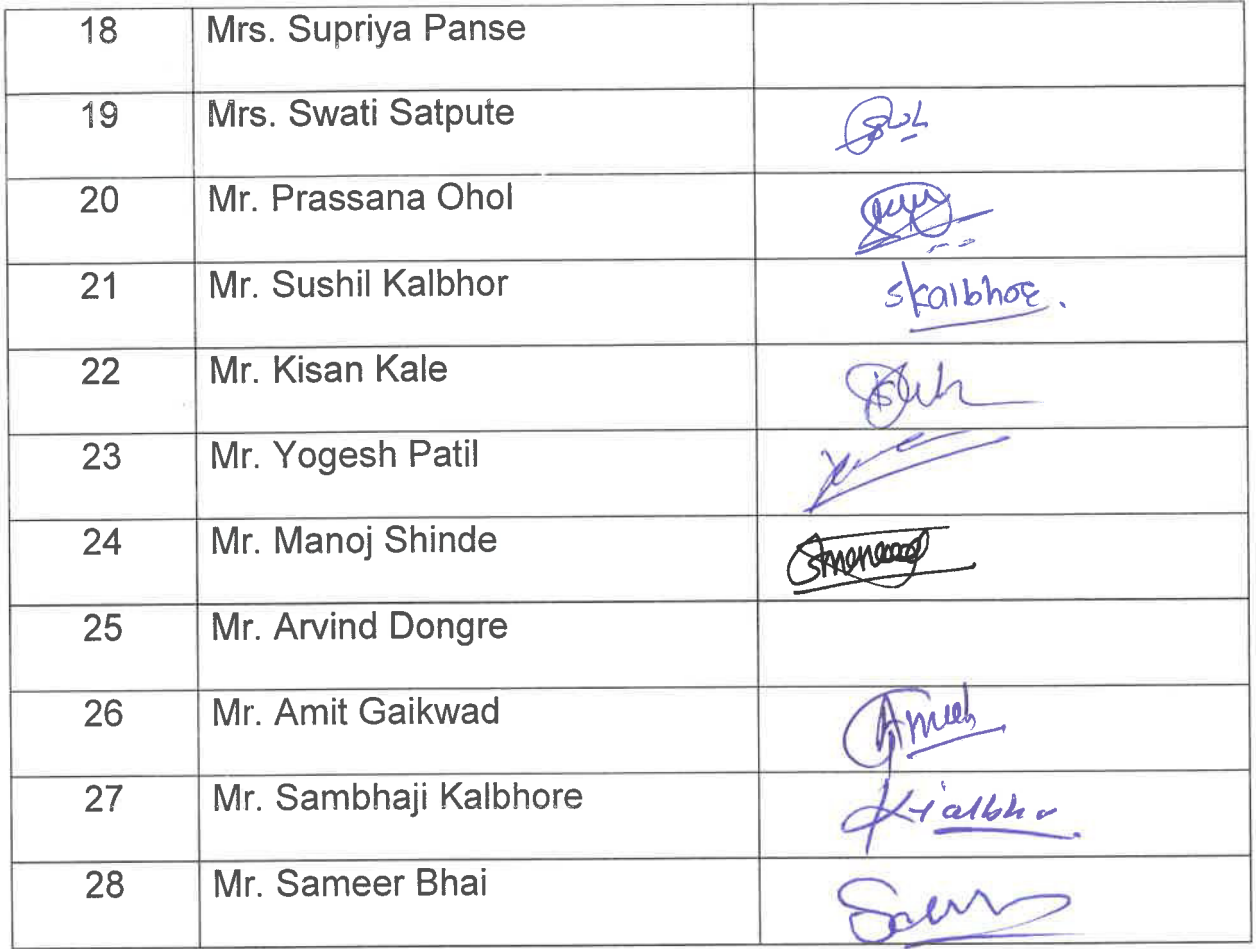 18 Mrs. Supriya Panse
19 Mrs. Swati Satpute
20 Mr. Prassana Ohol
21 Mr. Sushil Kalbhor skalbhor.
22 Mr. Kisan Kale
23 Mr. Yogesh Patil
24 Mr. Manoj Shinde
25 Mr. Arvind Dongre
26 Mr. Amit Gaikwad
27 Mr. Sambhaji Kalbhore
28 Mr. Sameer Bhai